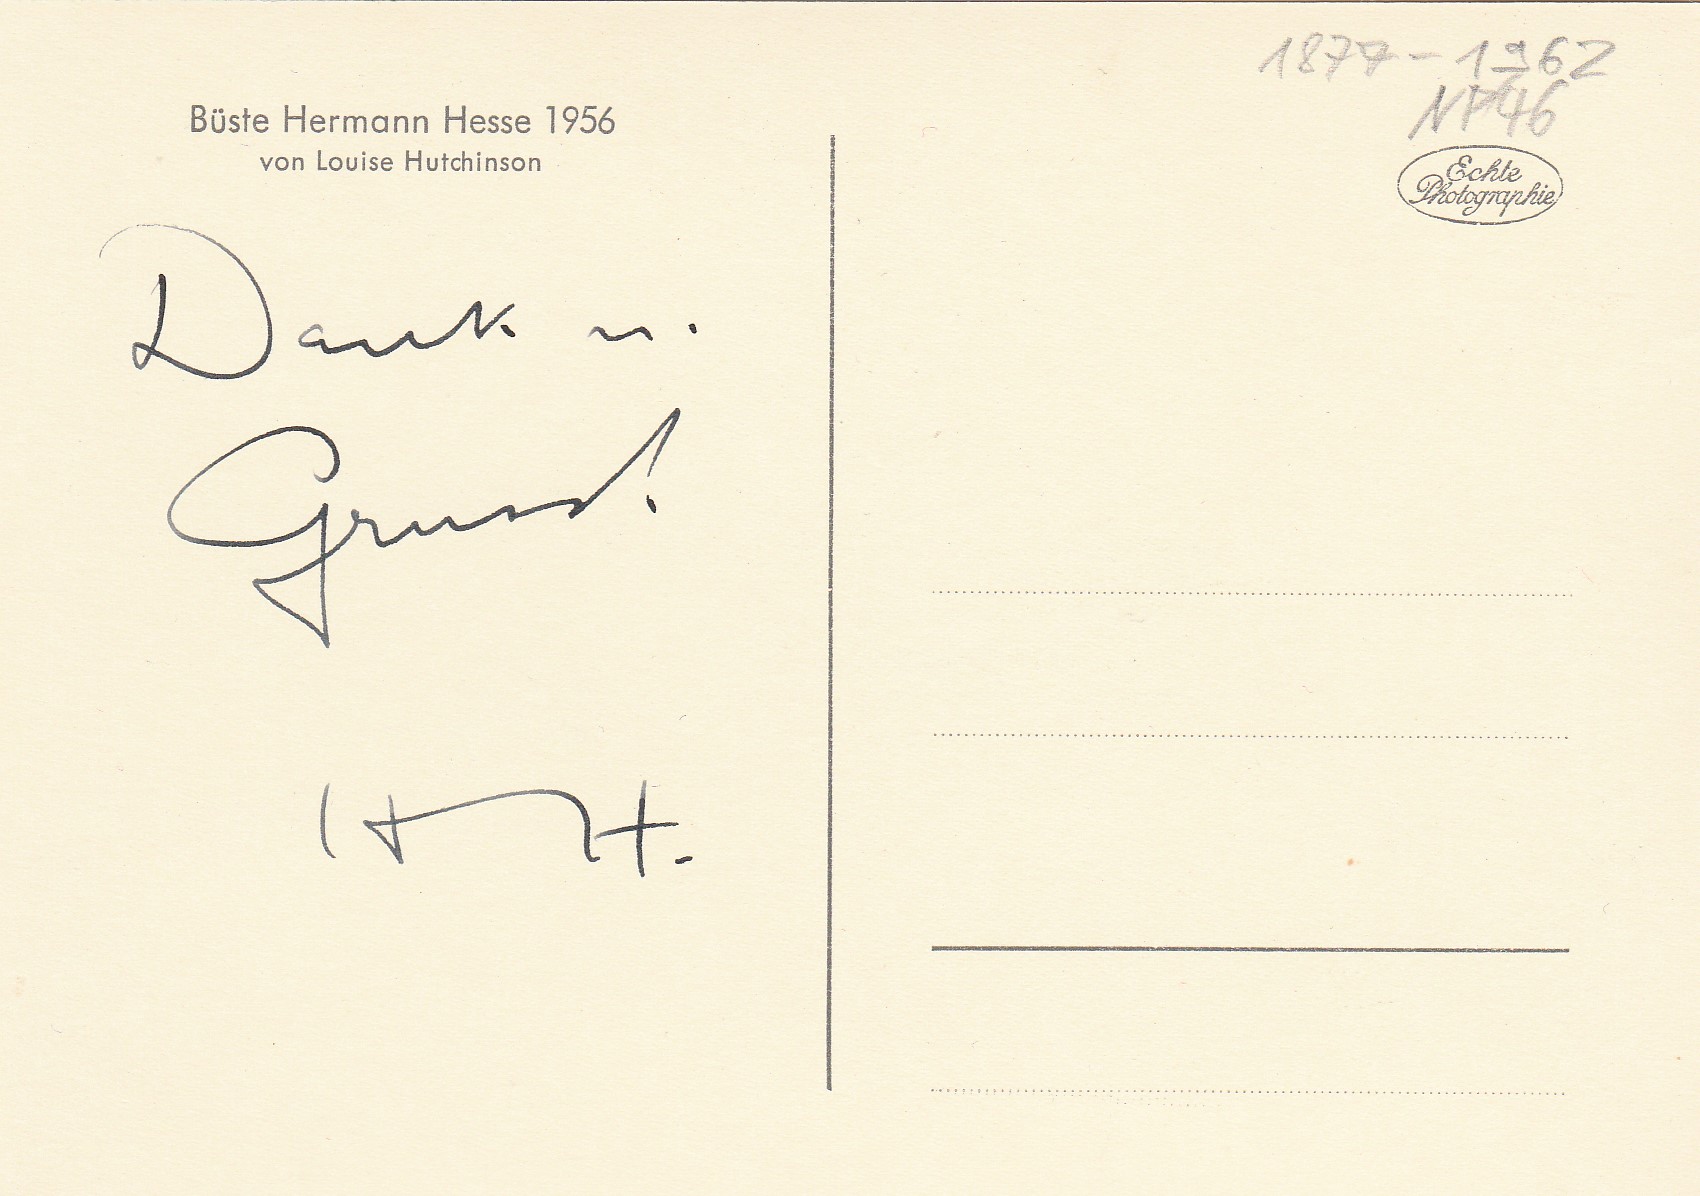 Büste Hermann Hesse 1956
von Louise Hutchinson
Dank u.
Gruss!
H H.
1877 - 1962
NP46
Echte
Photographie